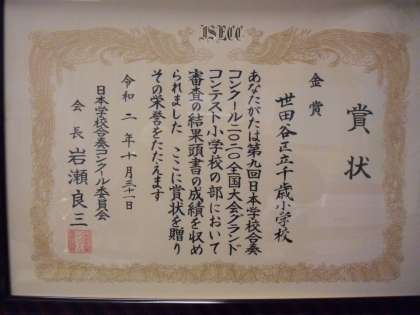 JSECC
賞状
金賞
世田谷区立千歳小学校
あなたがたは第九回日本学校合奏
コンクール二〇二〇全国大会グランド
コンテスト小学校の部において
審査の結果頭書の成績を収め
られました ここに賞状を贈り
その栄誉をたたえます
令和二年十月三十一日
日本学校合奏コンクール委員会
会長 岩瀬良三